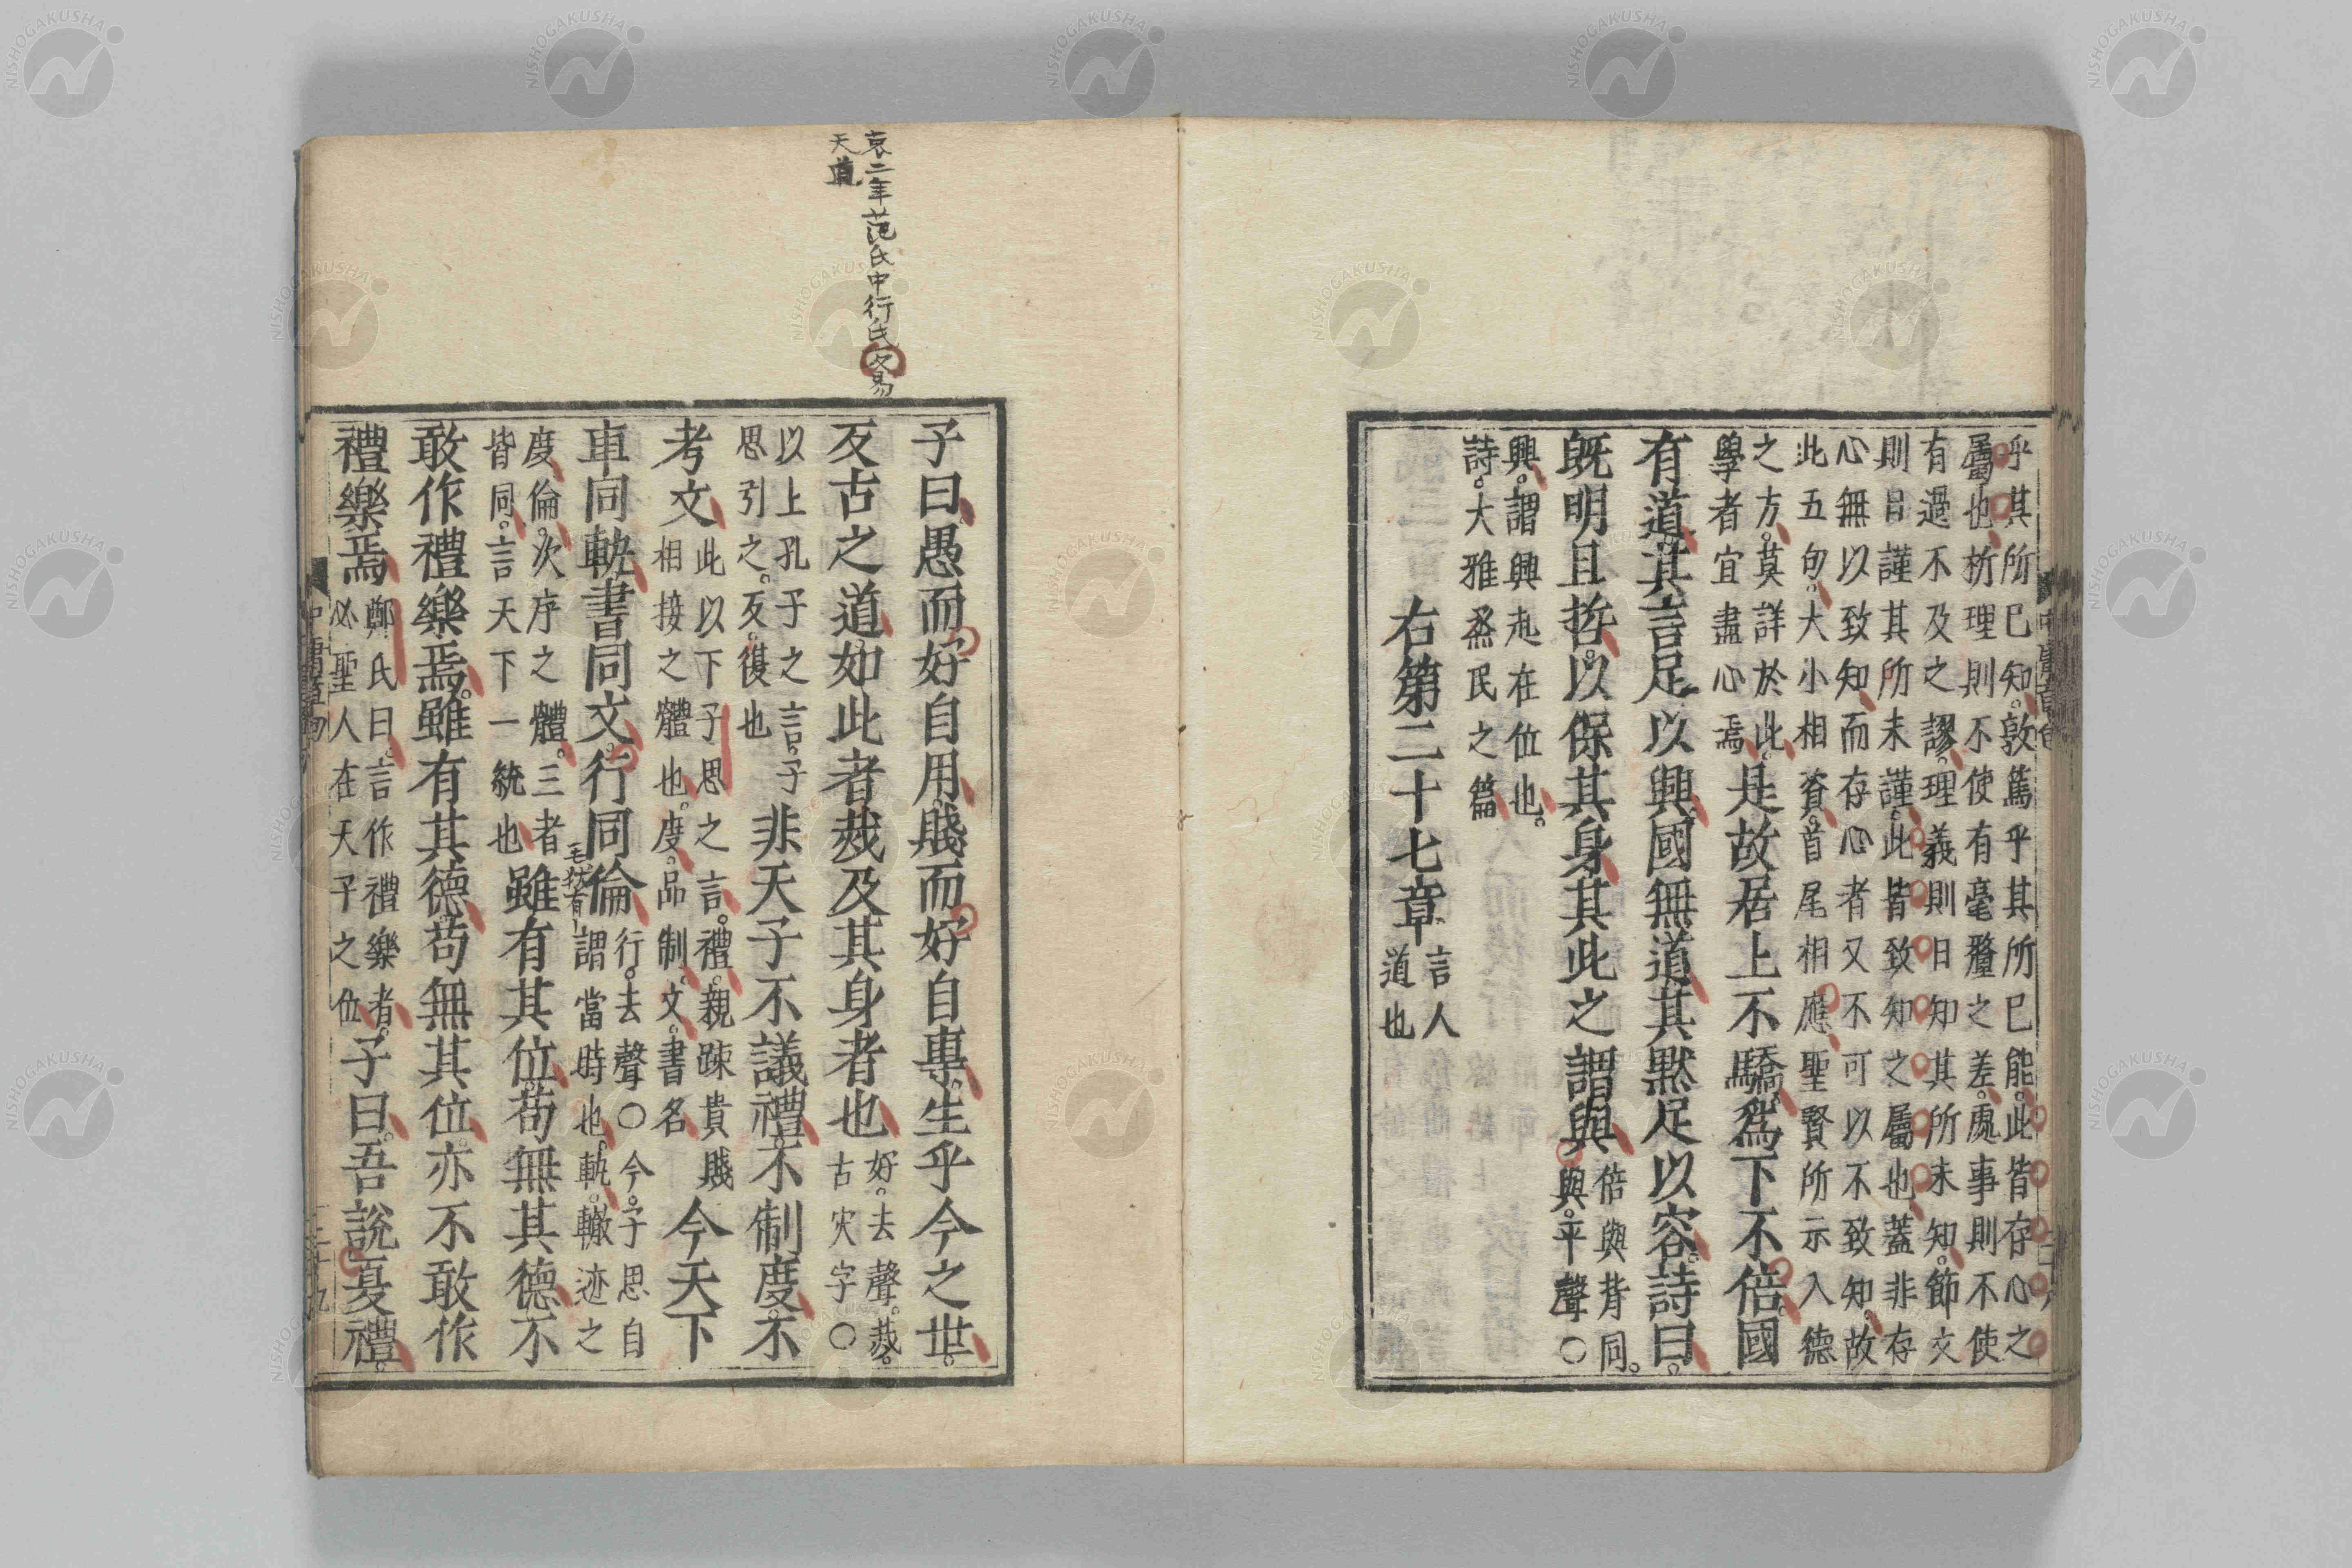 乎其所已知。敦篤乎其所已能。此皆存心之
屬也。析理則不使有毫釐之差。處事則不使
有過不及之謬。理義則日知其所未知。節文
則日謹其所未謹。此皆致知之屬也。蓋非存
心無以致知。而存心者又不可以不致知。故
此五句。大小相資。首尾相應。聖賢所示入德
之方。莫詳於此。
學者宜盡心焉
是故居上不驕。爲下不倍。國
有道。其言足以興。國無道。其默足以容。詩曰。
既明且哲。以保其身。其此之謂與
倍與背同。
與。平聲〇
興。謂興起在位也。
詩。大雅烝民之篇
右第二十七章
言人
道也
哀二年范氏中行氏反易
天道
子曰。愚而好自用。賤而好自專。生乎今之世。
反古之道。如此者烖及其身者也
好。去聲。烖。
古灾字〇
以上孔子之言。子
思引之。反。復也
非天子不議禮。不制度。不
考文
此以下子思之言。禮。親踈貴賤
相接之體也。度。品制。文。書名
今天下
車同軌。書同文。行同倫
行。去聲〇今。子思自
謂當時也。軌。轍迹之
度。倫。次序之體。三者
皆同。言天下一統也
雖有其位。苟無其德。不
敢作禮樂焉。雖有其德。苟無其位。亦不敢作
禮樂焉
鄭氏曰。言作禮樂者。
必聖人在天子之位
子曰。吾說夏禮。
NISHOGAKUSHA